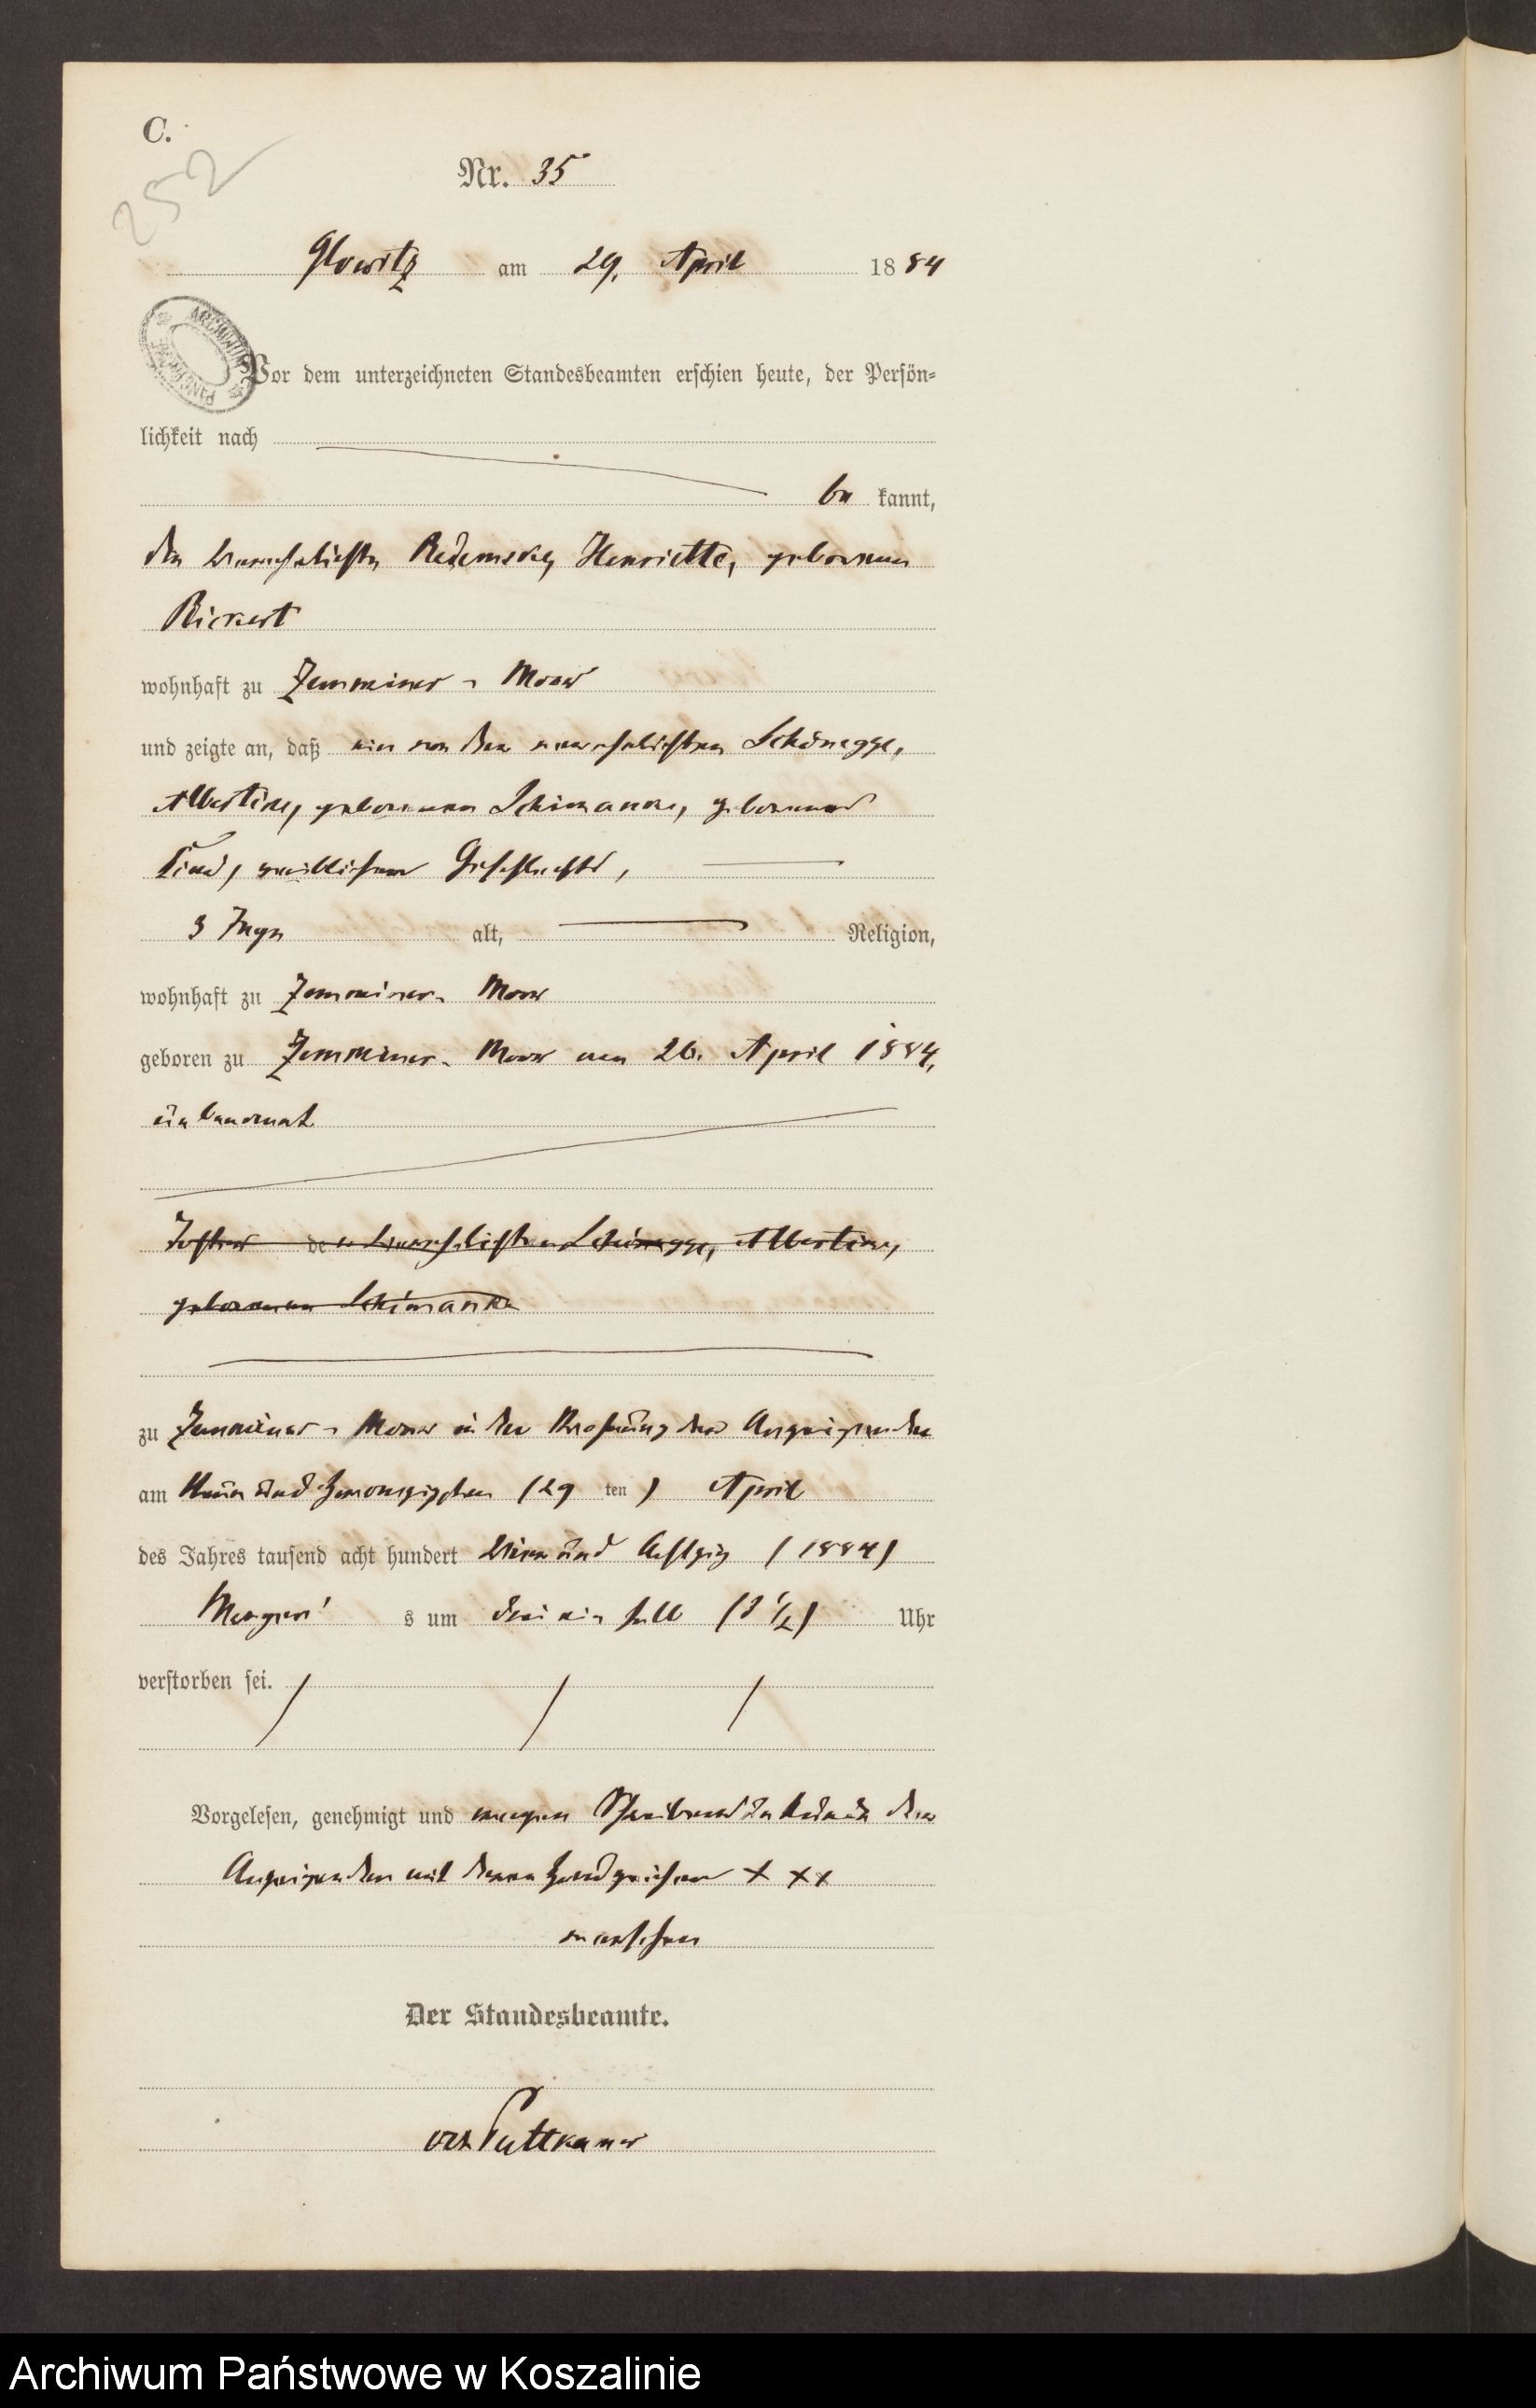 C.
252
Nr. 35
Glowitz am 29. April 1884
ARCHIWUM PAŃSTWOWE
Vor dem unterzeichneten Standesbeamten erschien heute, der Persön=
lichkeit nach
be kannt,
die verehelichte Henriette, geborene
Rickert
wohnhaft zu Zemminer-Moor
und zeigte an, daß ein von der verehelichten Schönegge,
Albertine, geborenen Schimanke, geborenes
Kind, weiblichen Geschlechts,
3 Tage alt, Religion,
wohnhaft zu Zemminer-Moor
geboren zu Zemminer-Moor am 26. April 1884,
unbenannt
Tochter der verehelichten Schönegge, Albertine,
geborenen Schimanke
zu Zemminer-Moor in der Wohnung der Anzeigenden
am Neun und zwanzigsten (29 ten) April
des Jahres tausend acht hundert vier und Achtzig (1884)
Morgen s um drei ein halb (3 1/2) Uhr
verstorben sei.
Vorgelesen, genehmigt und wegen Schreibensunkunde der
Anzeigenden mit deren Handzeichen + ++
versehen
Der Standesbeamte.
von Puttkamer
Archiwum Państwowe w Koszalinie